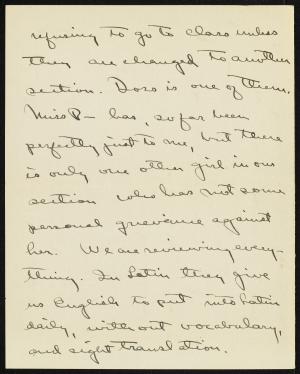 refusing to go to class unless
they are changed to another
section. Doro is one of them.
Miss P— has, so far been
perfectly just to me, but there
is only one other girl in our
section who has not some
personal grievance against
her. We are reviewing every-
thing. In Latin they give
us English to put into Latin
daily, without vocabulary,
and sight translation.